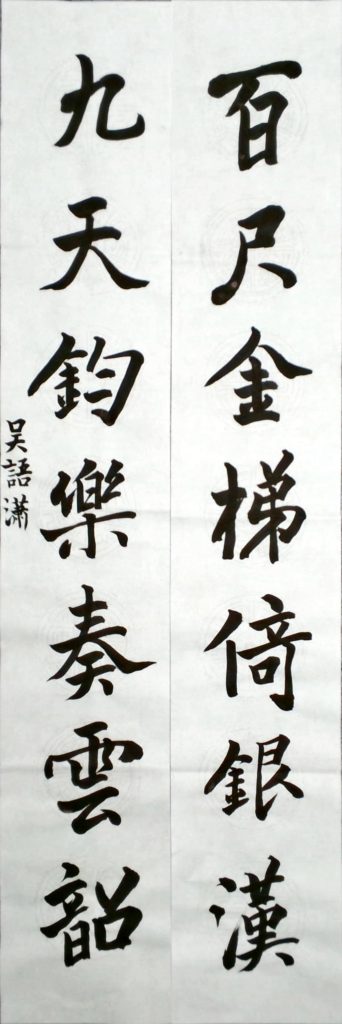 百尺金梯倚銀漢
九天鈞樂奏雲韶
吴語瀟